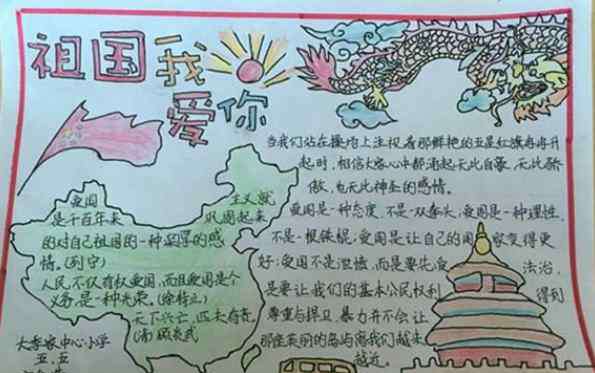 祖国我
爱你
爱国
主义就
是千百年来
巩固起来
的对自己祖国的一种深厚的感
情。(列宁)
人民不仅有权爱国,而且爱国是个
义务,是一种光荣。(徐特立)
天下兴亡,匹夫有责。
(清 顾炎武
大李家中心小学
五.五
当我们站在操场上注视着那鲜艳的五星红旗冉冉升
起时,相信大家心中都涌起无比自豪、无比骄
傲、也无比神圣的感情。
爱国是一种态度,不是一双拳头;爱国是一种理性,
不是一根铁棍;爱国是让自己的国家变得更
好;爱国不是泄愤,而是要先爱法治,
是要让我们的基本公民权利得到
尊重与捍卫。暴力并不会让
那座美丽的岛与离我们越来
越近。